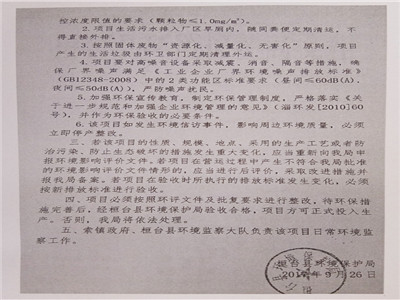 控浓度限值的要求（颗粒物≤1.0mg/m³）。
2.项目生活污水排入厂区旱厕内，随同粪便定期清运，不
得直接外排。
3.按照固体废物“资源化、减量化、无害化”原则，项目
产生的生活垃圾由环卫部门定期清理外运。
4.项目要对高噪音设备采取减震、消音、隔音等措施，确
保厂界噪声满足《工业企业厂界环境噪声排放标准》
（GB12348-2008）中的2类功能区标准要求（昼间≤60dB(A)、
夜间≤50dB(A)），严防噪声扰民。
5.加强环保宣传教育，制定环保管理制度，严格落实《关
于进一步规范和加强企业环境管理的意见》（淄环发[2010]60
号），并作为环保验收的必要条件。
6.该项目如发生环境信访事件，影响周边环境质量，必须
立即停产整改。
三、若该项目的性质、规模、地点、采用的生产工艺或者防
治污染、防止生态破坏的措施发生重大变化，应当重新向我局申
报环境影响评价文件。若项目在营运过程中产生不符合我局批准
的环境影响评价文件情形的，应当进行后评价，采取改进措施并
报我局备案。若项目在验收时所执行的排放标准发生变化，必须
按新排放标准进行验收。
四、项目必须按照环评文件及批复要求进行整改，待环保措
施完善后，经桓台县环境保护局验收合格，项目方可正式投入生
产。否则，我局将依法处理。
五、索镇政府、桓台县环境监察大队负责该项目日常环境监
察工作。
桓台县环境保护局
9月26日